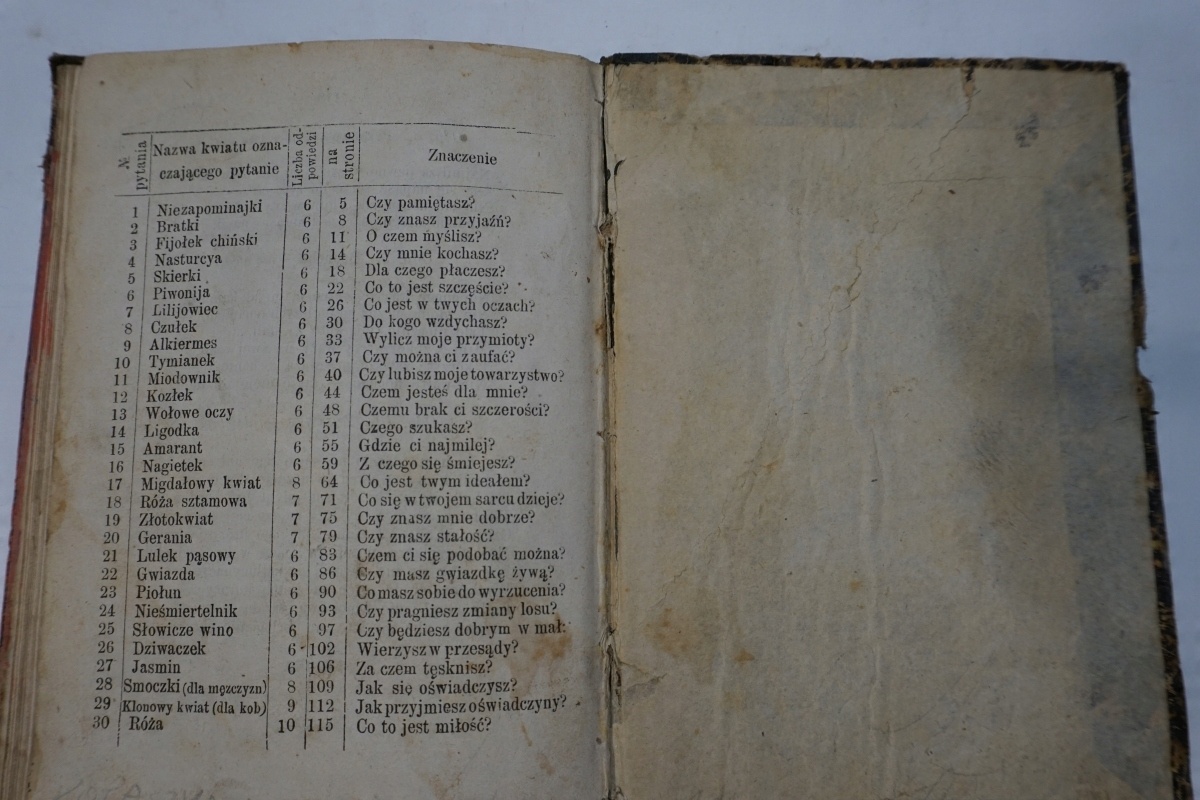 № pytania | Nazwa kwiatu ozna-czającego pytanie | Liczba od-powiedzi | na stronie | Znaczenie
1 Niezapominajki 6 5 Czy pamiętasz?
2 Bratki 6 8 Czy znasz przyjaźń?
3 Fijołek chiński 6 11 O czem myślisz?
4 Nasturcya 6 14 Czy mnie kochasz?
5 Skierki 6 18 Dla czego płaczesz?
6 Piwonija 6 22 Co to jest szczęście?
7 Lilijowiec 6 26 Co jest w twych oczach?
8 Czułek 6 30 Do kogo wzdychasz?
9 Alkiermes 6 33 Wylicz moje przymioty?
10 Tymianek 6 37 Czy można ci zaufać?
11 Miodownik 6 40 Czy lubisz moje towarzystwo?
12 Kozłek 6 44 Czem jesteś dla mnie?
13 Wołowe oczy 6 48 Czemu brak ci szczerości?
14 Ligodka 6 51 Czego szukasz?
15 Amarant 6 55 Gdzie ci najmilej?
16 Nagietek 6 59 Z czego się śmiejesz?
17 Migdałowy kwiat 8 64 Co jest twym ideałem?
18 Róża sztamowa 7 71 Co się w twojem sarcu dzieje?
19 Złotokwiat 7 75 Czy znasz mnie dobrze?
20 Gerania 7 79 Czy znasz stałość?
21 Lulek pąsowy 6 83 Czem ci się podobać można?
22 Gwiazda 6 86 Czy masz gwiazdkę żywą?
23 Piołun 6 90 Co masz sobie do wyrzucenia?
24 Nieśmiertelnik 6 93 Czy pragniesz zmiany losu?
25 Słowicze wino 6 97 Czy będziesz dobrym w mał:
26 Dziwaczek 6 102 Wierzysz w przesądy?
27 Jasmin 6 106 Za czem tęsknisz?
28 Smoczki (dla mężczyzn) 8 109 Jak się oświadczysz?
29 Klonowy kwiat (dla kob) 9 112 Jak przyjmiesz oświadczyny?
30 Róża 10 115 Co to jest miłość?